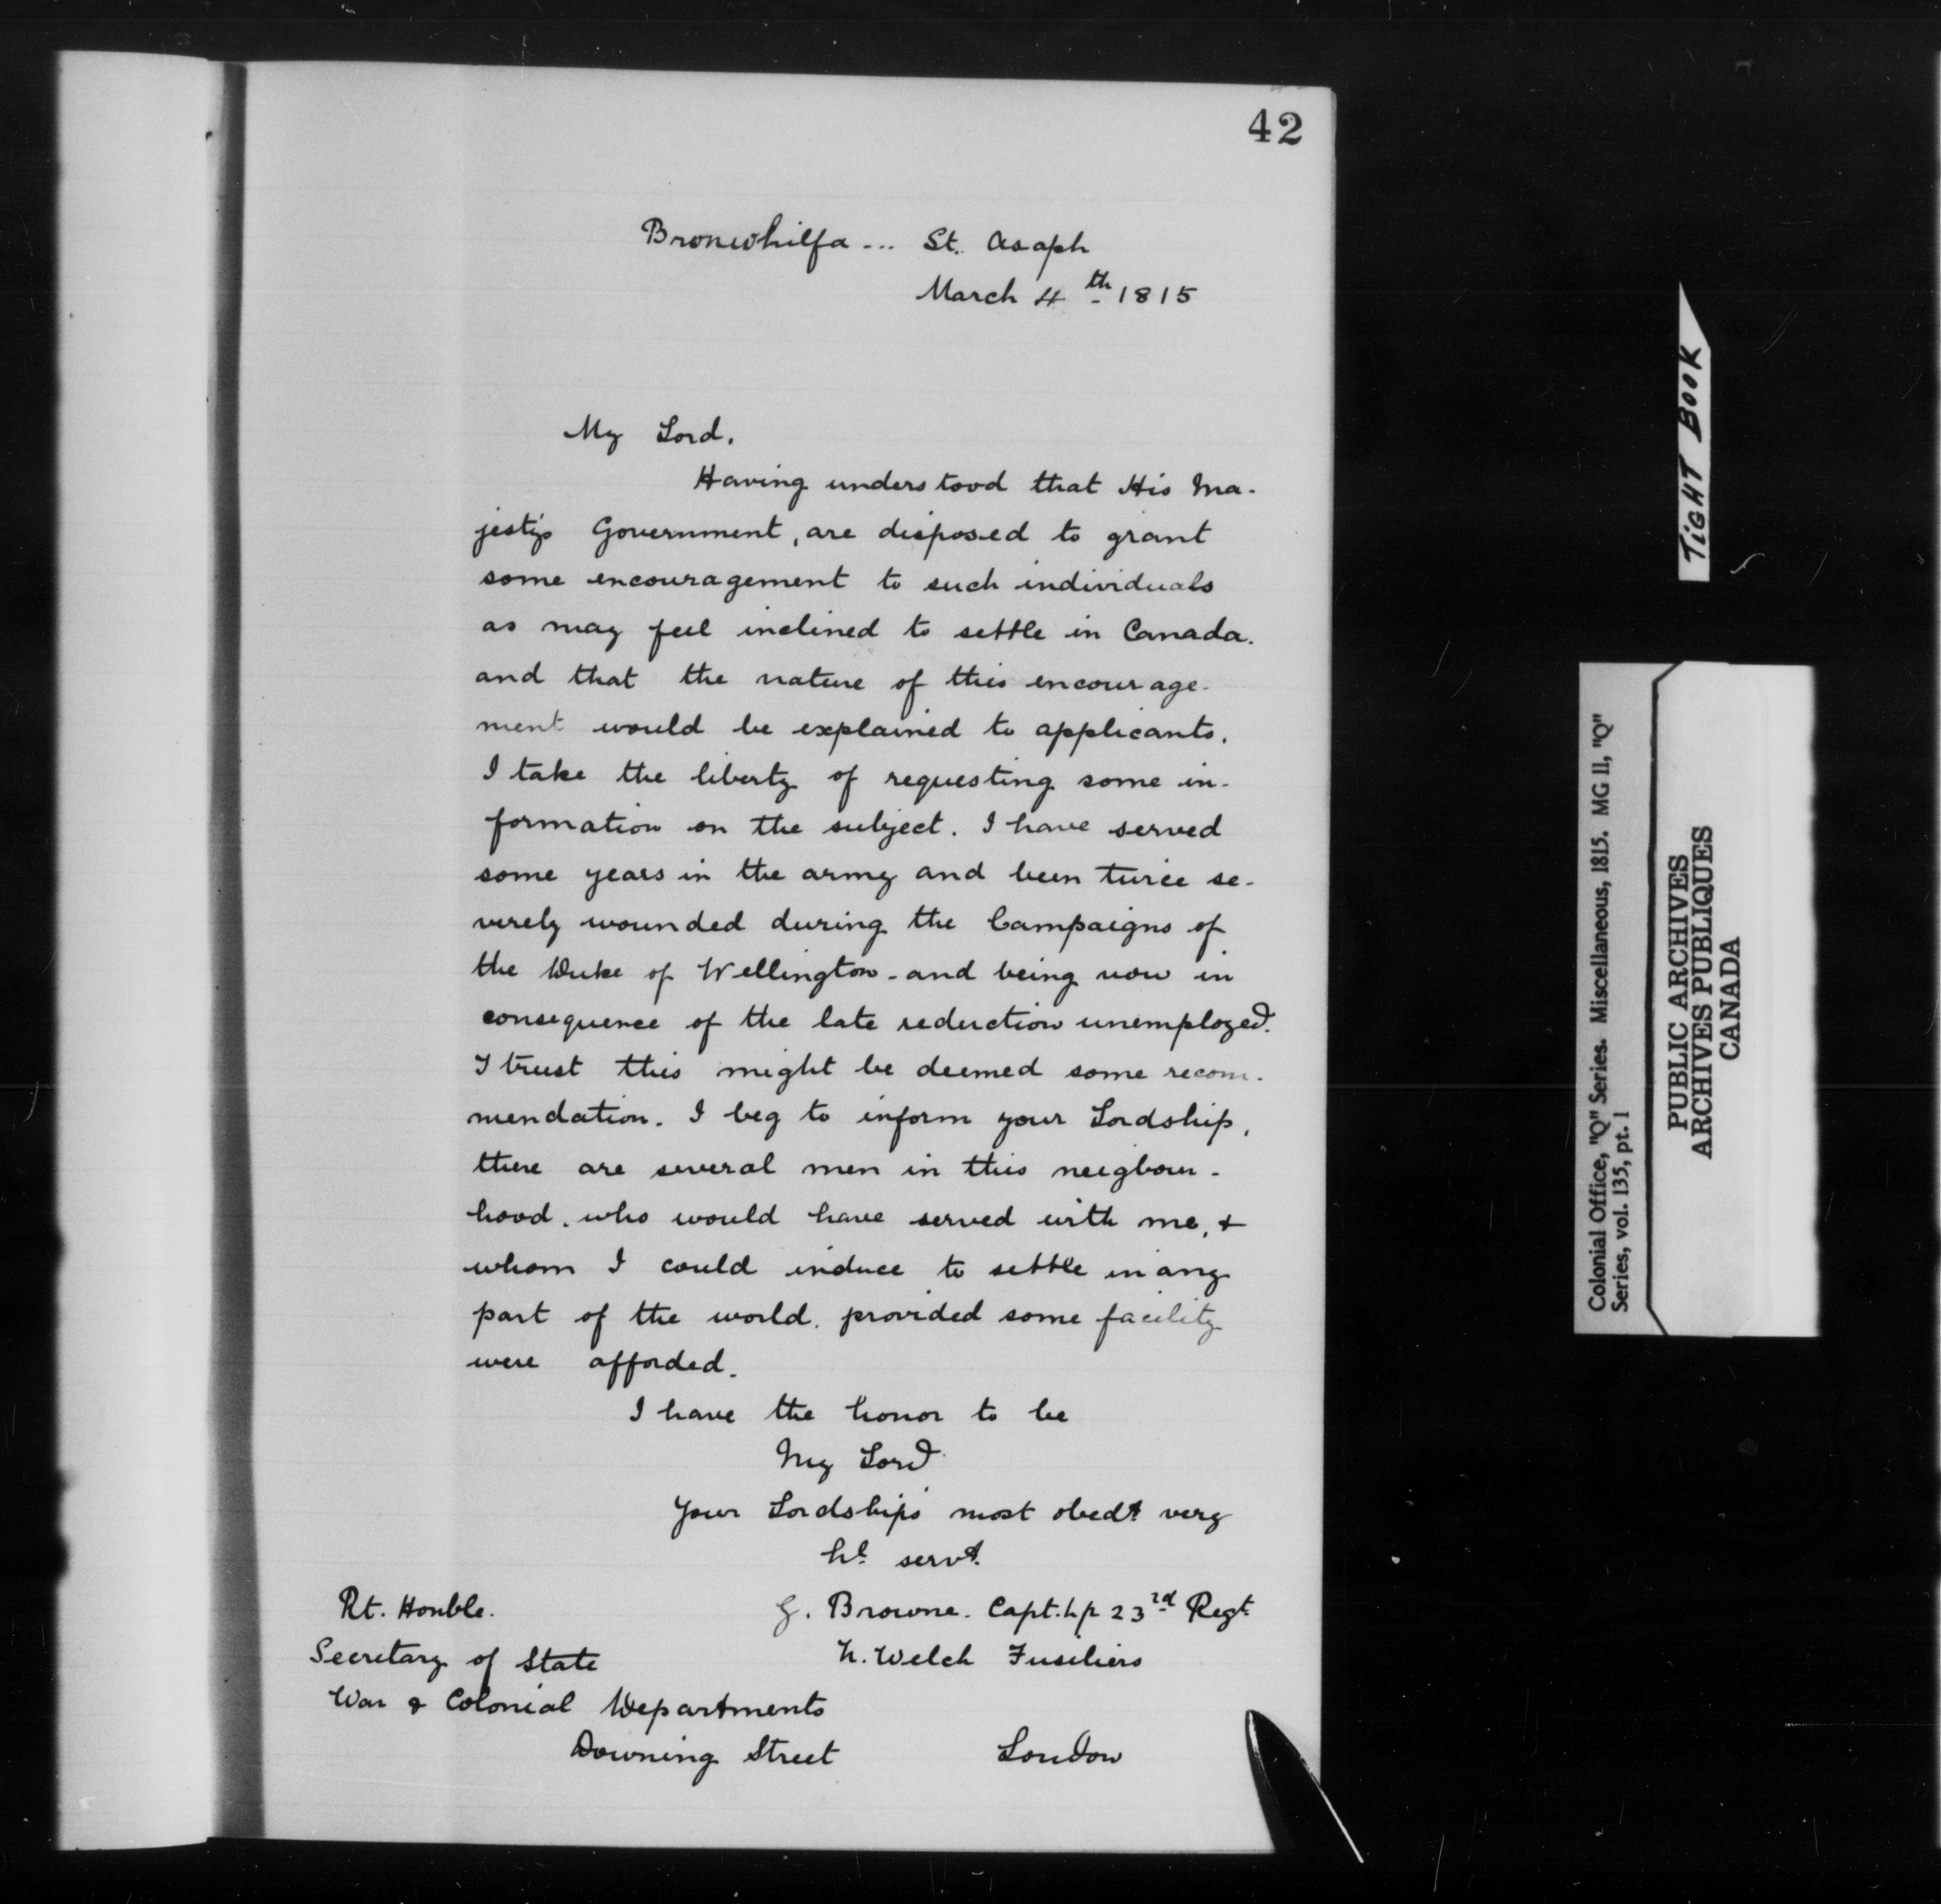 42
Bronwhilfa ... St. Asaph
March 4th 1815
My Lord.
Having understood that His Ma-
jesty's Government, are disposed to grant
some encouragement to such individuals
as may feel inclined to settle in Canada.
and that the nature of this encourage-
ment would be explained to applicants.
I take the liberty of requesting some in-
formation on the subject. I have served
some years in the army and been twice se-
verely wounded during the Campaigns of
the Duke of Wellington - and being now in
consequence of the late reduction unemployed.
I trust this might be deemed some recom-
mendation. I beg to inform your Lordship,
there are several men in this neigbour-
hood. who would have served with me, &
whom I could induce to settle in any
part of the world. provided some facility
were afforded.
I have the honor to be
My Lord
Your Lordships most obedt very
hl servt.
Rt. Honble.
G. Browne. Capt. h/p 23rd Regt
Secretary of State
W. Welch Fusiliers
War & Colonial Departments
Downing Street London
TIGHT BOOK
Colonial Office, "Q" Series. Miscellaneous, 1815. MG 11, "Q"
Series, vol. 135, pt. 1
PUBLIC ARCHIVES
ARCHIVES PUBLIQUES
CANADA